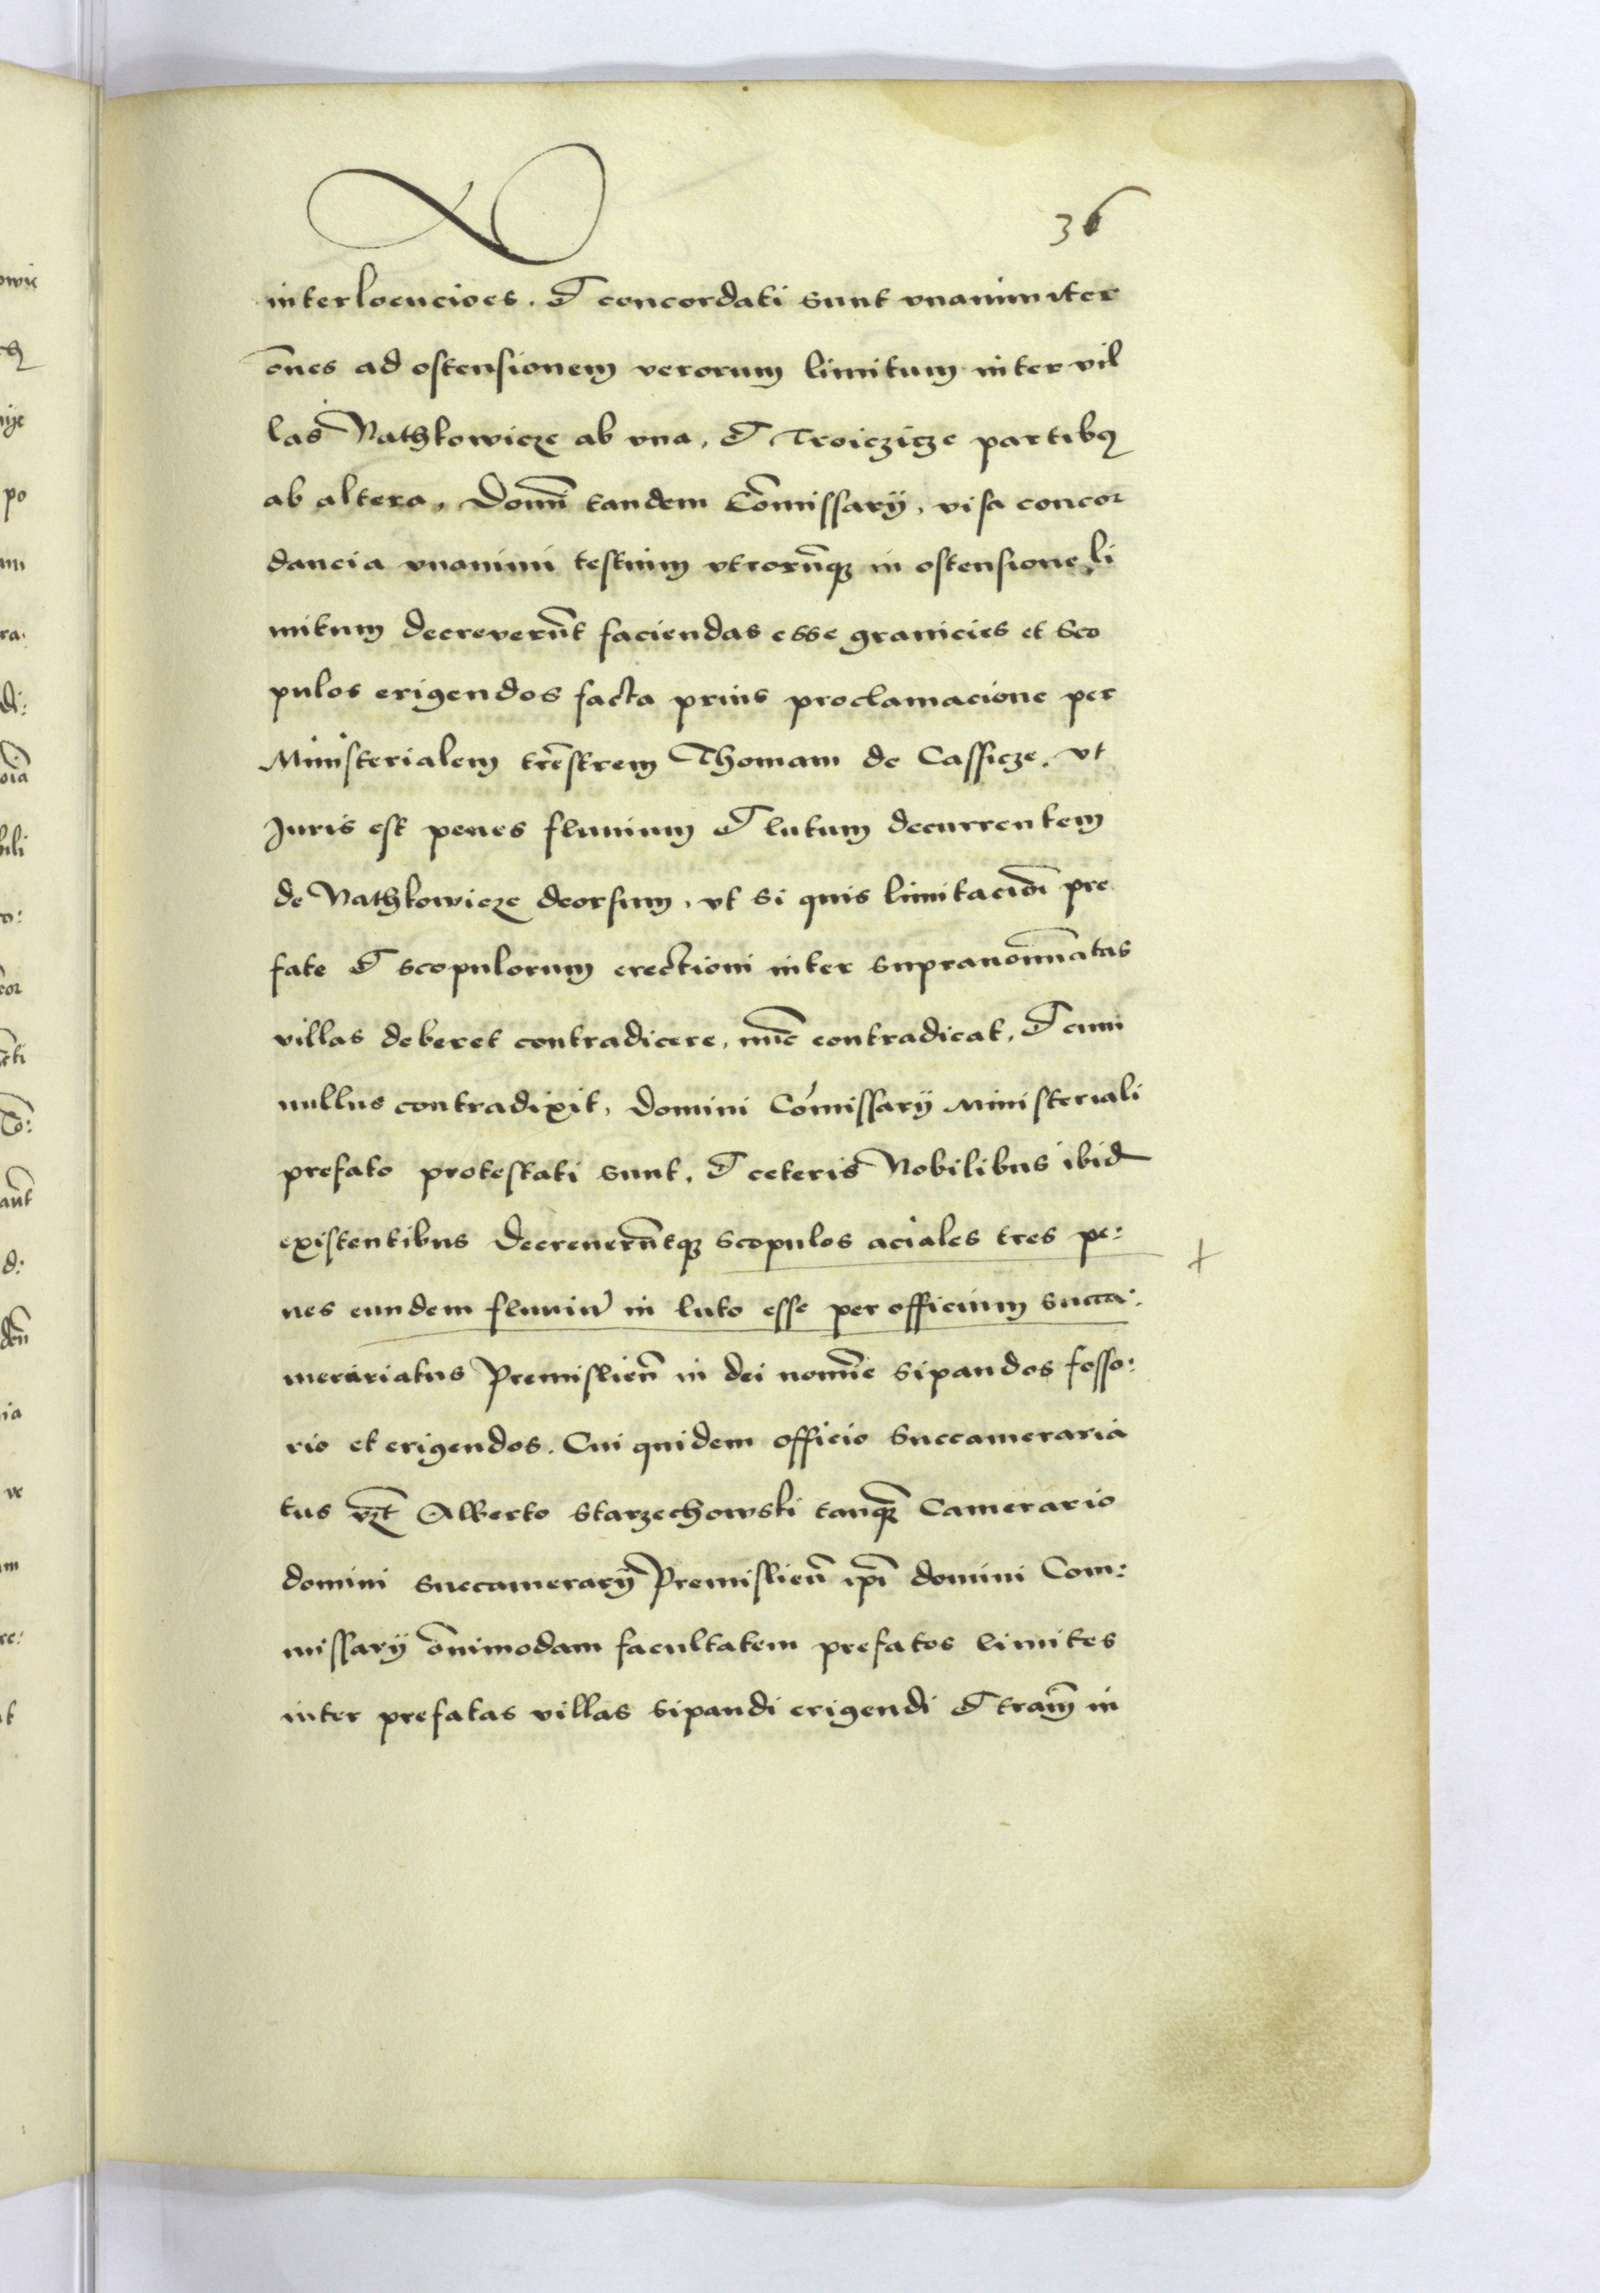 36
interlocucioēs. Et concordati sunt vnanimiter
ōnes ad ostensionem verorum limitum inter vil
las Nathkowicze ab vna, et Troiczicze partibꝫ
ab altera, Domī tandem Cōmissarÿ, visa concor
dancia vnanimi testium vtrorūqꝫ in ostensione li
mitum decreverūt faciendas esse granicies et sco
pulos erigendos facta prius proclamacione per
Ministerialem trēstrem Thomam de Cassicze, vt
Juris est penes fluuium et lutum decurrentem
de Nathkowicze deorsum, vt si quis limitaciōi pre
fate et scopulorum erectioni inter supranoīnatas
villas deberet contradicere, nūc contradicat, Et cum
nullus contradixit, Domini Cōmissarÿ Ministeriali
prefato protestati sunt, et ceteris Nobilibus ibid
existentibus decreuerūtqꝫ scopulos aciales tres pe:
nes eundem fluuiū in luto esse per officium succa:
merariatus Premislieñ in dei noīe sipandos fosso:
rio et erigendos. Cui quidem officio Succameraria
tus vꝫt Alberto Starzechowski tanqꝫ Camerario
domini succamerarÿ Premislieñ ipī domini Com:
missarÿ ōnimodam facultatem prefatos limites
inter prefatas villas sipandi erigendi et tram̄ in